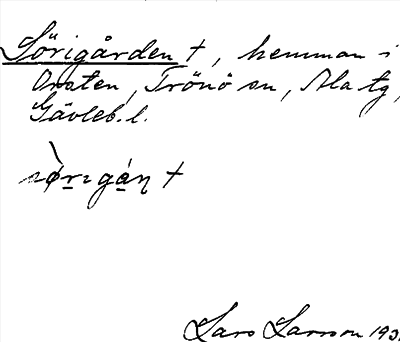 Sörigården †, hemman i
Orsten, Trönö sn, Ala tg,
Gävleb. l.
sø̀rıgáṇ †
Lars Larsson 193